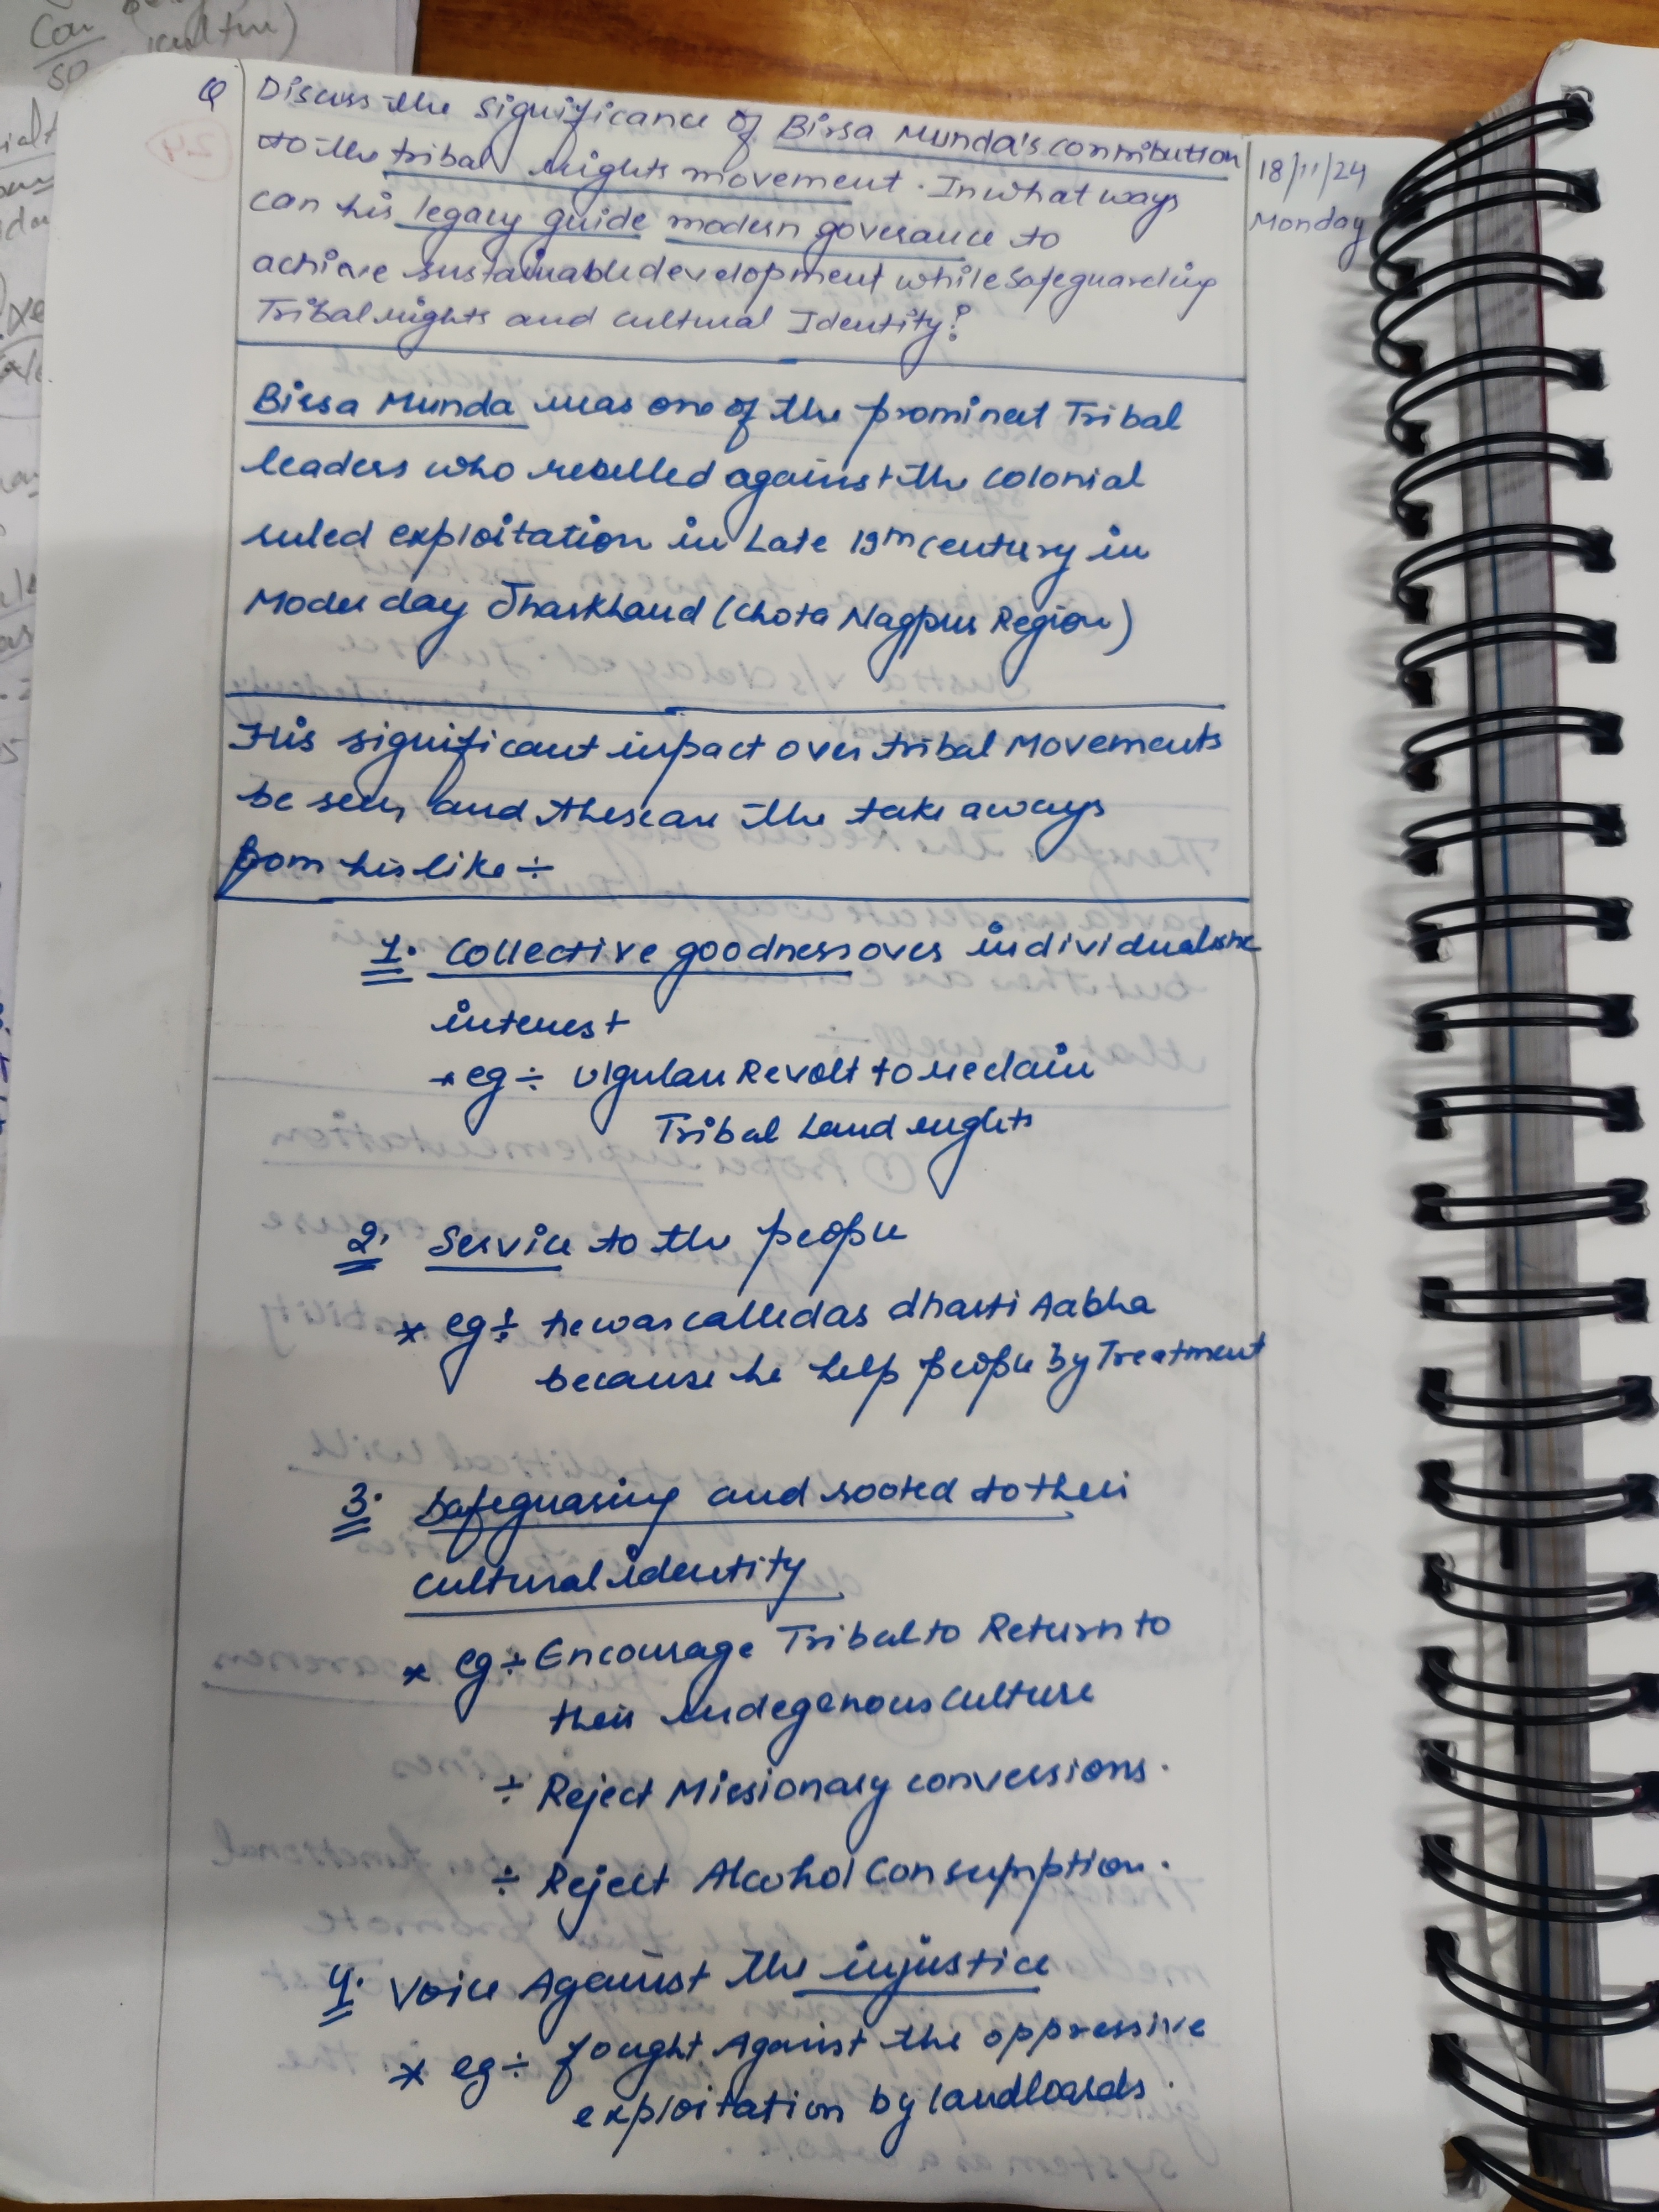 Q Discuss the significance of Birsa Munda's contribution
to the tribal rights movement. In what ways
can his legacy guide modern goverance to
achieve sustainable development while Safeguarding
Tribal rights and cultural Identity?
18/11/24
Monday
24
Birsa Munda was one of the prominent Tribal
leaders who rebelled against the colonial
ruled exploitation in Late 19th century in
Moder day Jharkhand (Chota Nagpur Region)
His significant impact over tribal Movements
be seen and these are the take aways
from his like ÷
1. Collective goodness over individualistic
interest
* eg ÷ Ulgulan Revolt to reclaim
Tribal Land rights
2. Service to the people
* eg ÷ he was called as dharti Aabha
because he help people by Treatment
3. Safeguaring and rooted to their
cultural identity
* eg ÷ Encourage Tribal to Return to
their indegenous culture
÷ Reject Missionary conversions.
÷ Reject Alcohol Consumption.
4. Voice Against the injustice
* eg ÷ fought Against the oppressive
exploitation by landloards.